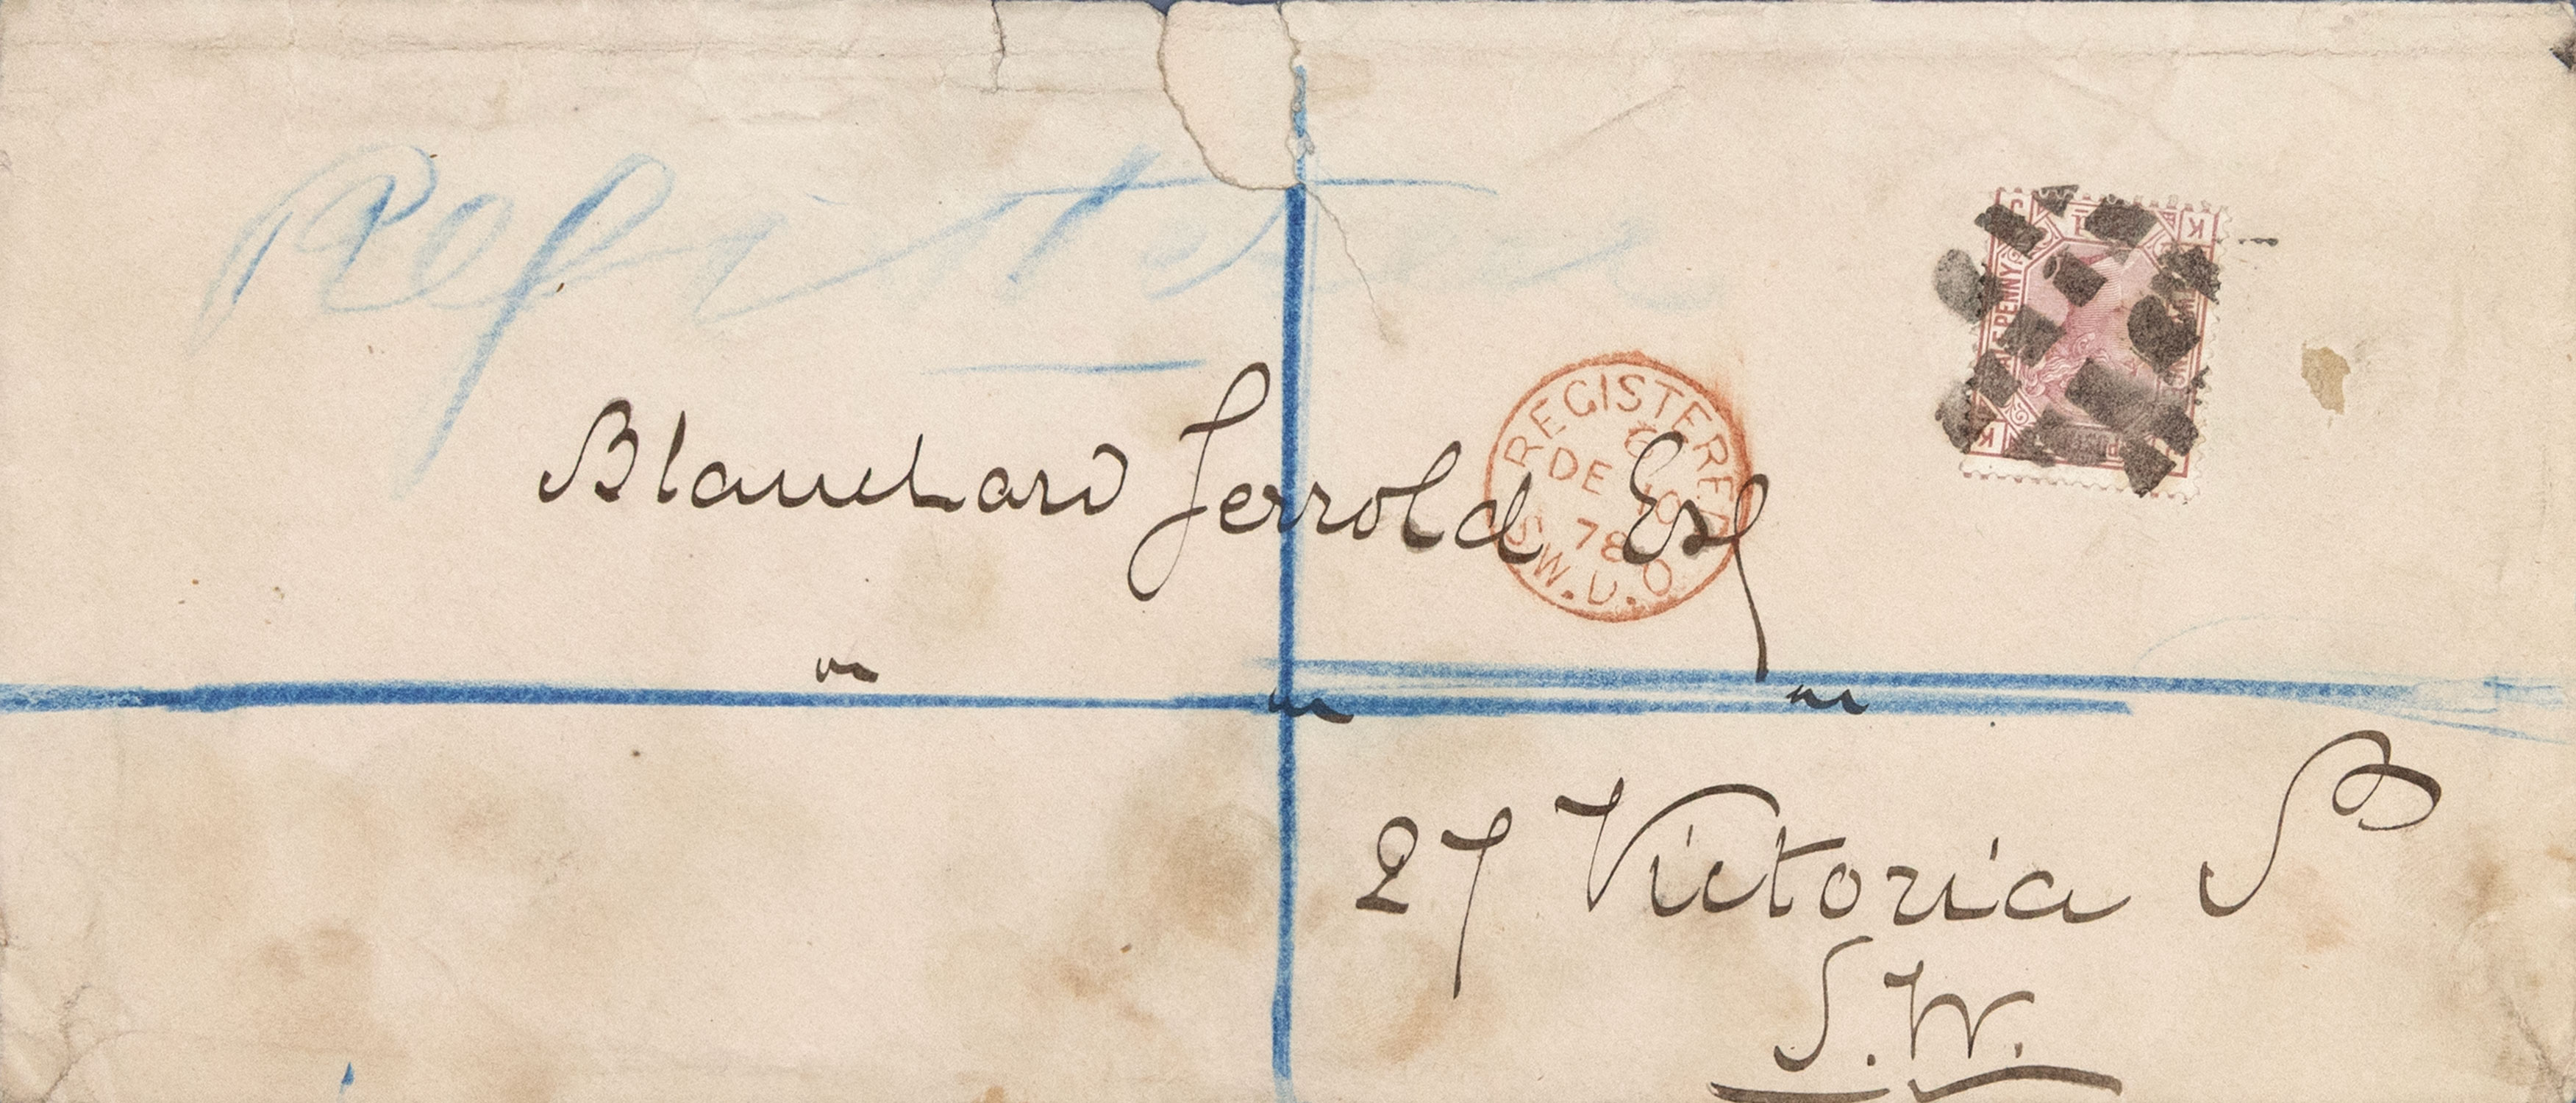 Registered
Blanchard Jerrold Esq
REGISTERED
DE 10
78
S.W.D.O.
27 Victoria St
S.W.
K
PENNY
K